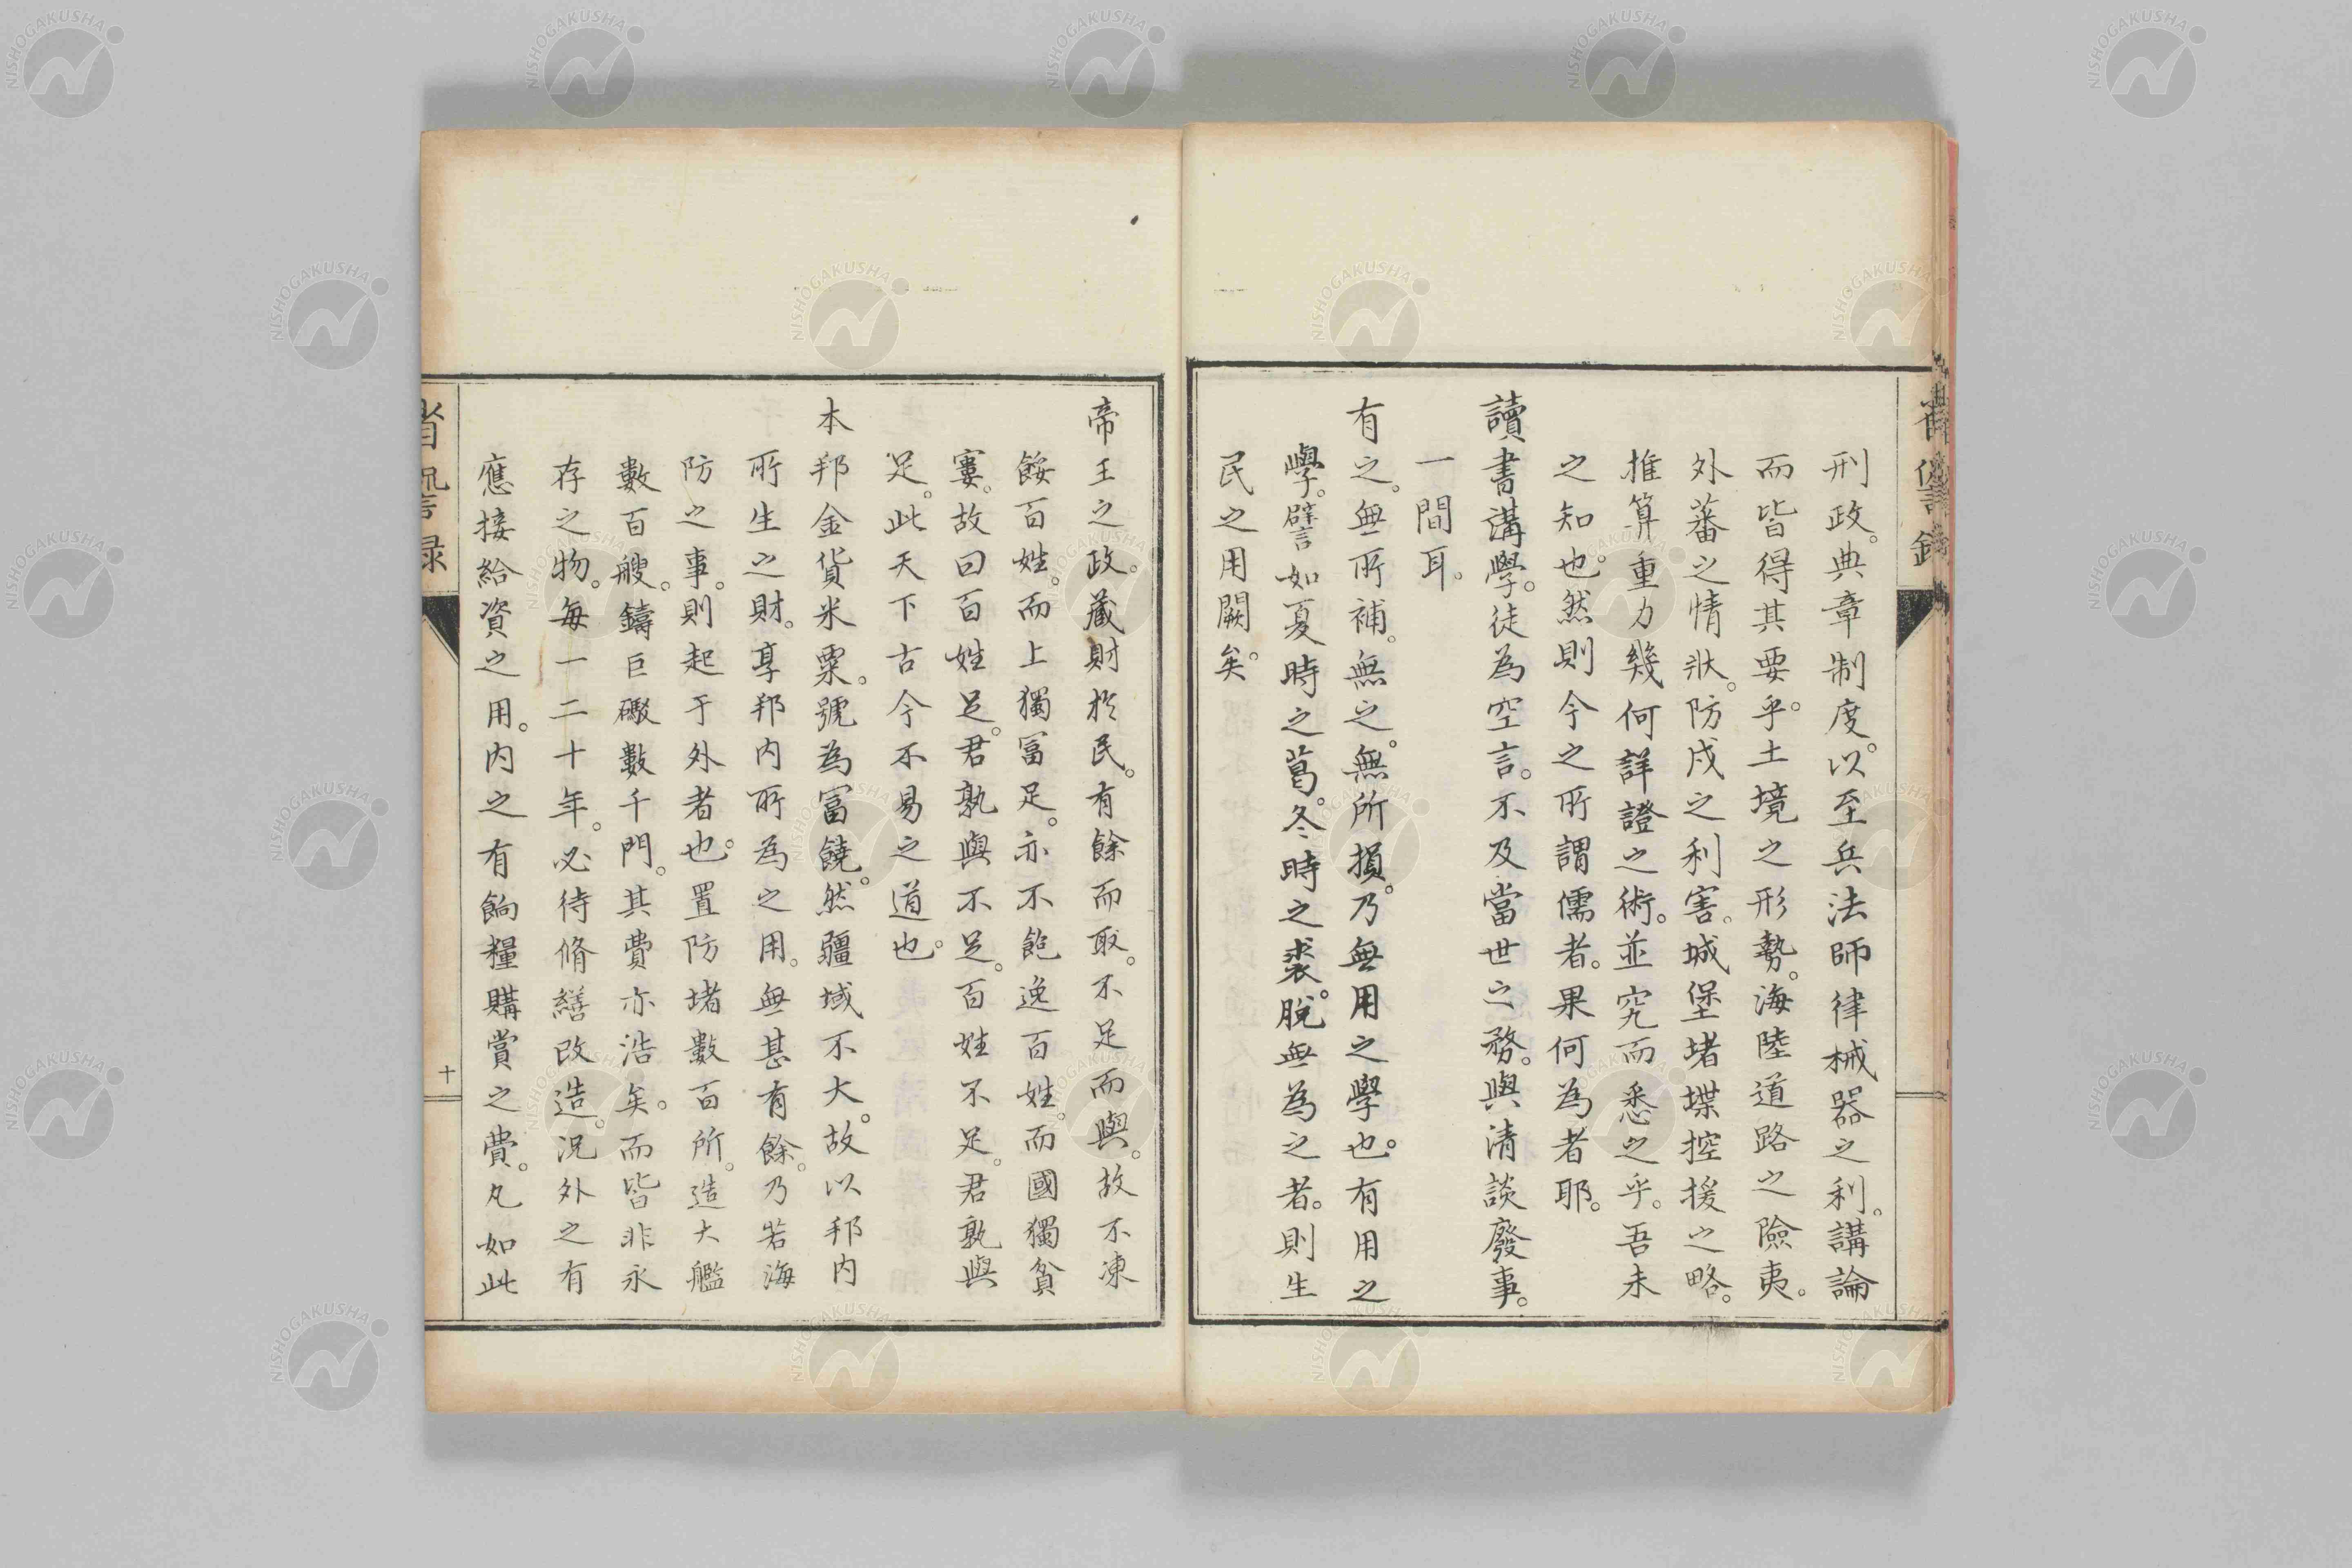 刑政。典章制度。以至兵法師律械器之利。講論
而皆得其要乎。土境之形勢。海陸道路之險夷。
外蕃之情狀。防戍之利害。城堡堵堞控援之略。
推算重力幾何詳證之術。並究而悉之乎。吾未
之知也。然則今之所謂儒者。果何為者耶。
讀書講學。徒為空言。不及當世之務。與清談廢事。
一間耳。
有之。無所補。無之。無所損。乃無用之學也。有用之
學。譬如夏時之葛。冬時之裘。脫無為之者。則生
民之用闕矣。
帝王之政。藏財於民。有餘而取。不足而與。故不凍
餒百姓。而上獨富足。亦不飽逸百姓。而國獨貧
寠。故曰百姓足。君孰與不足。百姓不足。君孰與
足。此天下古今不易之道也。
本邦金貨米粟。號為富饒。然疆域不大。故以邦內
所生之財。享邦內所為之用。無甚有餘。乃若海
防之事。則起于外者也。置防堵數百所。造大艦
數百艘。鑄巨礮數千門。其費亦浩矣。而皆非永
存之物。每一二十年。必待脩繕改造。況外之有
應接給資之用。內之有餉糧購賞之費。凡如此
省諐录
十
NISHOGAKUSHA